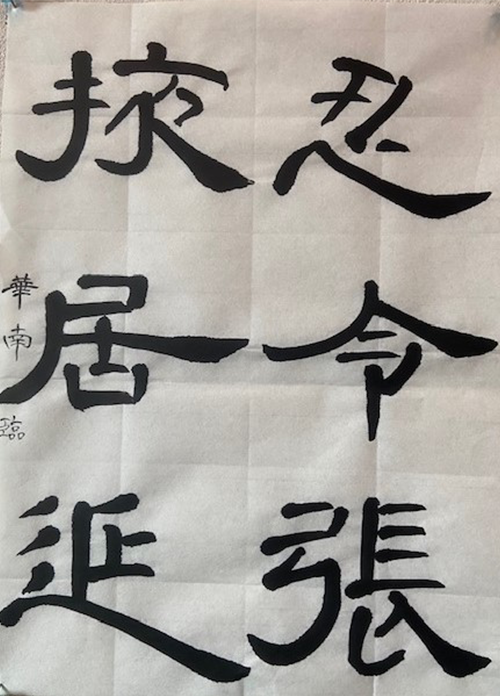 忍令張
掖居延
華南臨